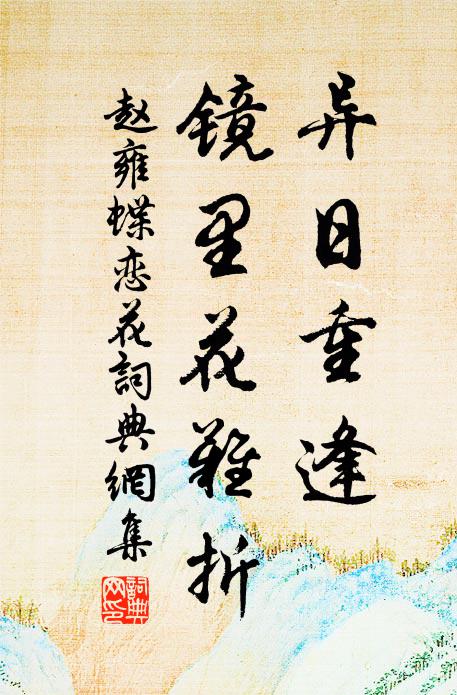 异日重逢
镜里花难折
赵雍蝶恋花詞典網集
詞典网印